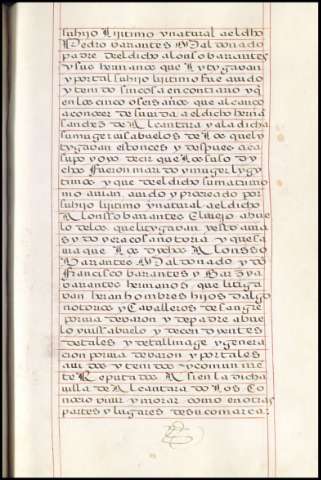 su hijo lijitimo y natural a el dho
Pedro barantes Maldonado
padre del dicho alonso barrantes
y sus hermanos que lytygavan
y por tal su hijo lijitimo fue avido
y tenido sin cosa en contrario y q̃
en los cinco o seis años que alcanço
a conocer de su vida a el dicho hernã
sandrez de Alcantara y a la dicha
su muger visabuelos de los que ly
tygavan entonces y despues aca
supo y oyo decir que los suso dy
chos fueron marido y muger lygy
timos y que del dicho su matrimo
nio avian avido y procreado por
su hijo lijitimo y natural a el dicho
Alonsso barantes El viejo abue
lo de los que litygavan y esto ama
s y do vera cosa notoria y que sa
via que Los dichos Alonsso
Barantes Maldonado y dõ
Francisco barantes y Garzia
barantes hermanos que litiga
van heran hombres hijos dalgo
notorios y Cavalleros de sangre
por via de varon y de padre abue
lo y visabuelo y decendyentes
de tales y de tal linage y genera
cion por via de varon y por tales
avidos y tenidos y comunmẽ
te Reputados Asi en la dicha
villa de Alcantara do Los Co
nocio vivir y morar como en otras
partes y lugares de su comarca.